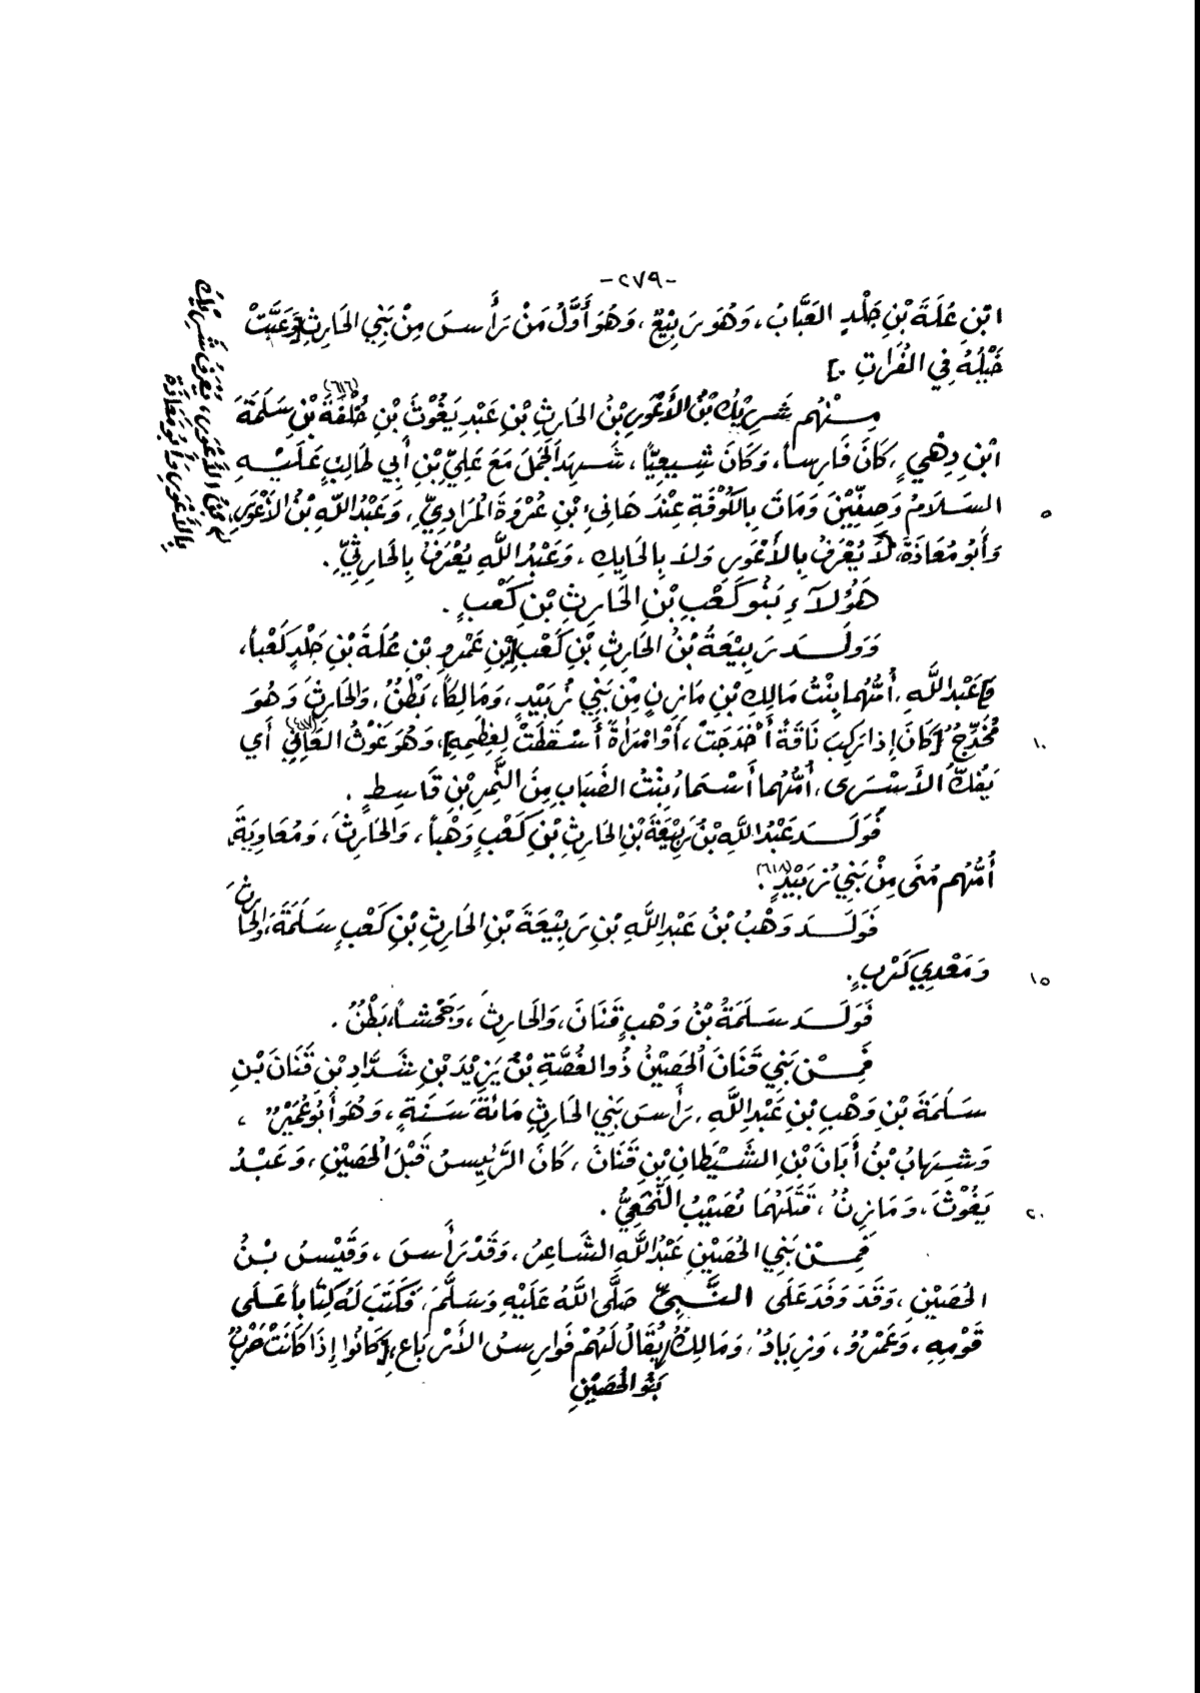 -٢٧٩-
ابْنِ عُلَةَ بْنِ جَلْدٍ العَبَّابُ، وَهُوَ رَبِيْعٌ، وَهُوَ أَوَّلُ مَنْ رَأَسَ مِنْ بَنِي الحَارِثِ [وَعَبَّتْ
خَيْلُهُ فِي الفُرَاتِ.]
مِنْهُم شَرِيْكُ بْنُ الأَعْوَرِ بْنُ الحَارِثِ بْنِ عَبْدِ يَغُوْثَ بْنِ خُلْفَةَ (٦١٦) بْنِ سَلَمَةَ
ابْنِ دِهْيٍ، كَانَ فَارِساً، وَكَانَ شِيعِيّاً، شَهِدَ الجَمَلَ مَعَ عَلِيِّ بْنِ أَبِي طَالِبٍ عَلَيْهِ
السَلَامُ وَصِفِّيْنَ وَمَاتَ بِالكُوْفَةِ عِنْدَ هَانِئِ بْنِ عُرْوَةَ المُرَادِيِّ، وَعَبْدُ اللهِ بْنُ الأَعْوَرِ،
٥
وَأَبُو مُعَاذَةَ، لَا يُعْرَفُ بِالأَعْوَرِ وَلَا بِالحَايِكِ، وَعَبْدُ اللَّهِ يُعْرَفُ بِالحَارِثِيِّ.
هَؤُلَاءِ بَنُو كَعْبِ بْنِ الحَارِثِ بْنِ كَعْبٍ.
وَوَلَدَ رَبِيْعَةُ بْنُ الحَارِثِ بْنِ كَعْبِ [بْنِ عَمْرِو بْنِ عُلَةَ بْنِ جَلْدٍ كَعْباً،
وَ] عَبْدَ اللَّهِ، أُمُّهُما بِنْتُ مَالِكِ بْنِ مَازِنٍ مِنْ بَنِي زُبَيْدٍ، وَمَالِكاً، بَطْنٌ، وَالحَارِثَ وَهُوَ
مُخَدِّجٌ [كَانَ إِذا رَكِبَ نَاقَةً أَخْدَجَتْ، أَوْ امْرَأَةً أَسْقَطَتْ لِعِظَمِهِ]، وَهُوَ غَوْثُ العَانِي (٦١٧) أَي
١٠
يَفُكُّ الأَسْرَى، أُمُّهُما أَسْمَاءُ بِنْتُ الضَبَابِ مِنَ النَّمِرِ بْنِ قَاسِطٍ.
فَوَلَدَ عَبْدُ اللَّهِ بْنُ رَبِيْعَةَ بْنِ الحَارِثِ بْنِ كَعْبٍ وَهْباً، وَالحَارِثَ، وَمُعَاوِيَةَ،
أُمُّهُم مُنَى مِنْ بَنِي زُبَيْدٍ (٦١٨).
فَوَلَدَ وَهْبُ بْنُ عَبْدِ اللَّهِ بْنِ رَبِيْعَةَ بْنِ الحَارِثِ بْنِ كَعْبٍ سَلَمَةَ، وَالحَارِثَ
وَمَعْدِي كَرْبٍ.
١٥
فَوَلَدَ سَلَمَةُ بْنُ وَهْبٍ قَنَانَ، وَالحَارِثَ، وَجَحْشاً، بَطْنٌ.
فَمِنْ بَنِي قَنَانَ الحُصَيْنُ ذُو الغُصَّةِ بْنُ يَزِيْدَ بْنِ شَدَّادِ بْنِ قَنَانَ بْنِ
سَلَمَةَ بْنِ وَهْبِ بْنِ عَبْدِ اللَّهِ، رَأَسَ بَنِي الحَارِثِ مَائَةَ سَنَةٍ، وَهُوَ أَبُو عُمَيْرٍ،
وَشِهَابُ بْنُ أَبَانَ بْنِ الشَيْطَانِ بْنِ قَنَانَ، كَانَ الرَّئِيسُ قَبْلَ الحُصَيْنِ، وَعَبْدُ
يَغُوْثَ، وَمَازِنُ، قَتَلَهُمَا نُصَيْبُ النَّخَعِيُّ.
٢٠
فَمِنْ بَنِي الحُصَيْنِ عَبْدُ اللَّهِ الشَاعِرُ، وَقَدْ رَأَسَ، وَقَيْسُ بْنُ
الحُصَيْنِ، وَقَدَ وَفَدَ عَلَى النَّبِيِّ صَلَّى اللَّهُ عَلَيْهِ وَسَلَّمَ، فَكَتَبَ لَهُ كِتَاباً عَلَى
قَوْمِهِ، وَعَمْرٌو، وَزِيَادٌ، وَمَالِكٌ، يُقَالُ لَهُمْ فَوَارِسُ الأَرْبَاعِ، [كَانُوا إِذَا كَانَتْ حَرْبٌ
بَنُو الحُصَيْنِ
بِالأَعْوَرِ وَأَبُو مُعَاذَةَ